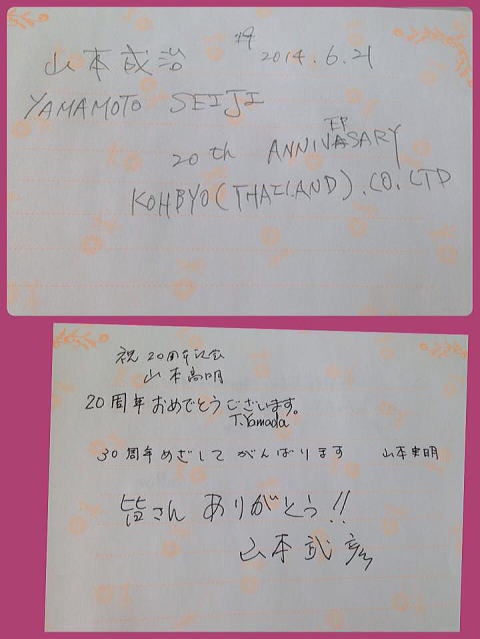 山本成治 2014.6.21
YAMAMOTO SEIJI
20th ANNIVERSARY
KOHBYO(THAILAND).CO.LTD
祝20周年記念
山本高明
20周年おめでとうございます。
T.Yamada
30周年めざしてがんばります 山本実明
皆さんありがとう!!
山本武彦